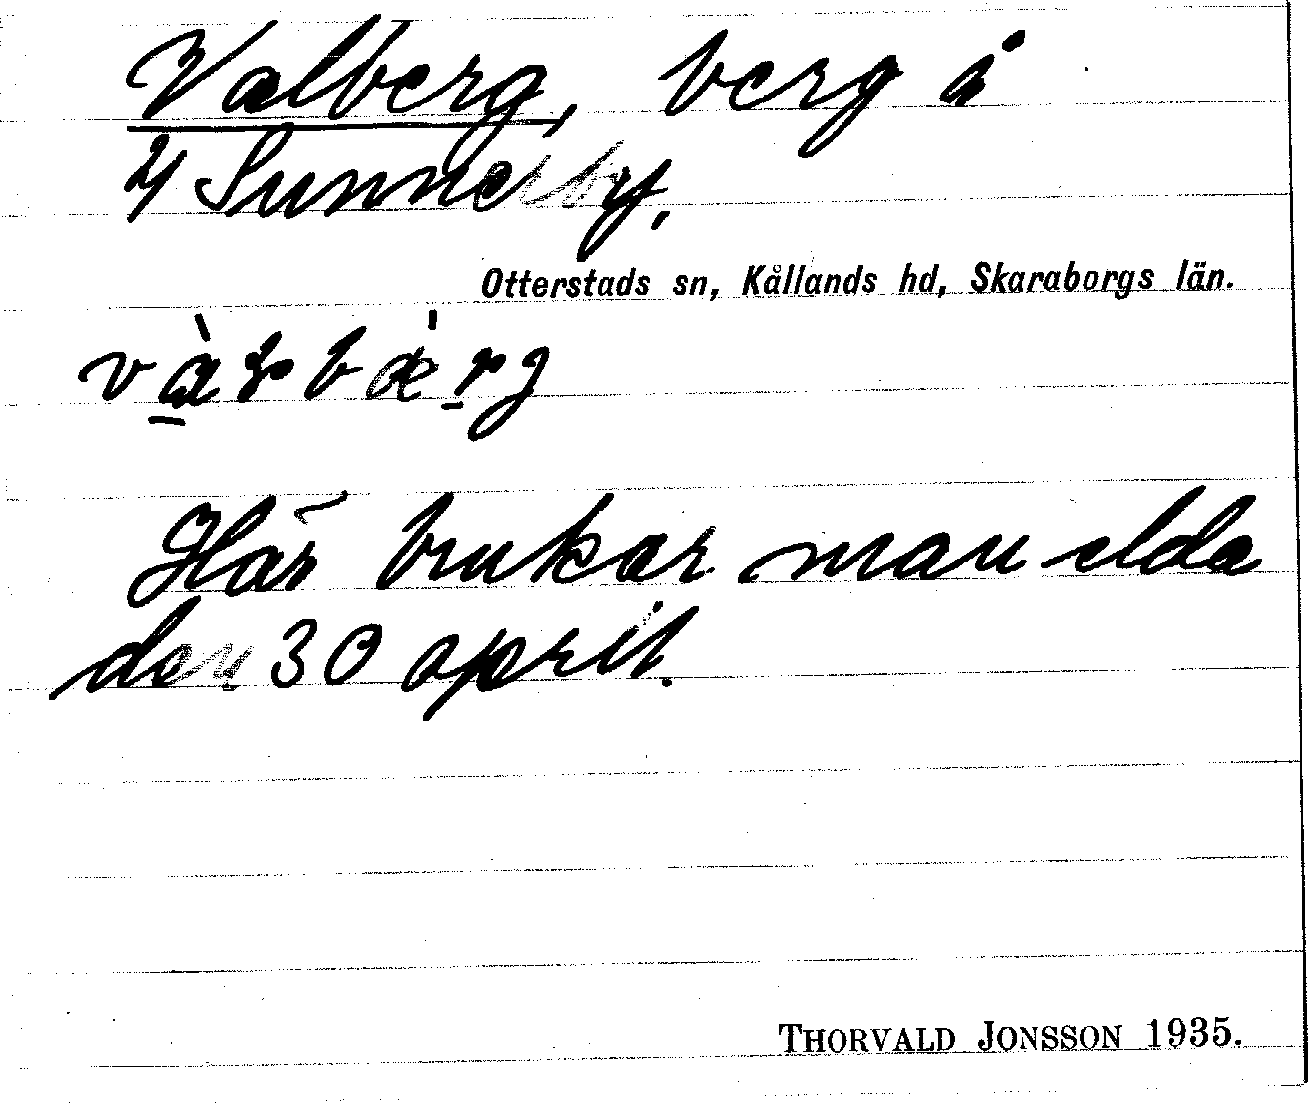 Valberg, berg å
4 Sunnerby,
Otterstads sn, Kållands hd, Skaraborgs län.
Här brukar man elda
den 30 april.
THORVALD JONSSON 1935.